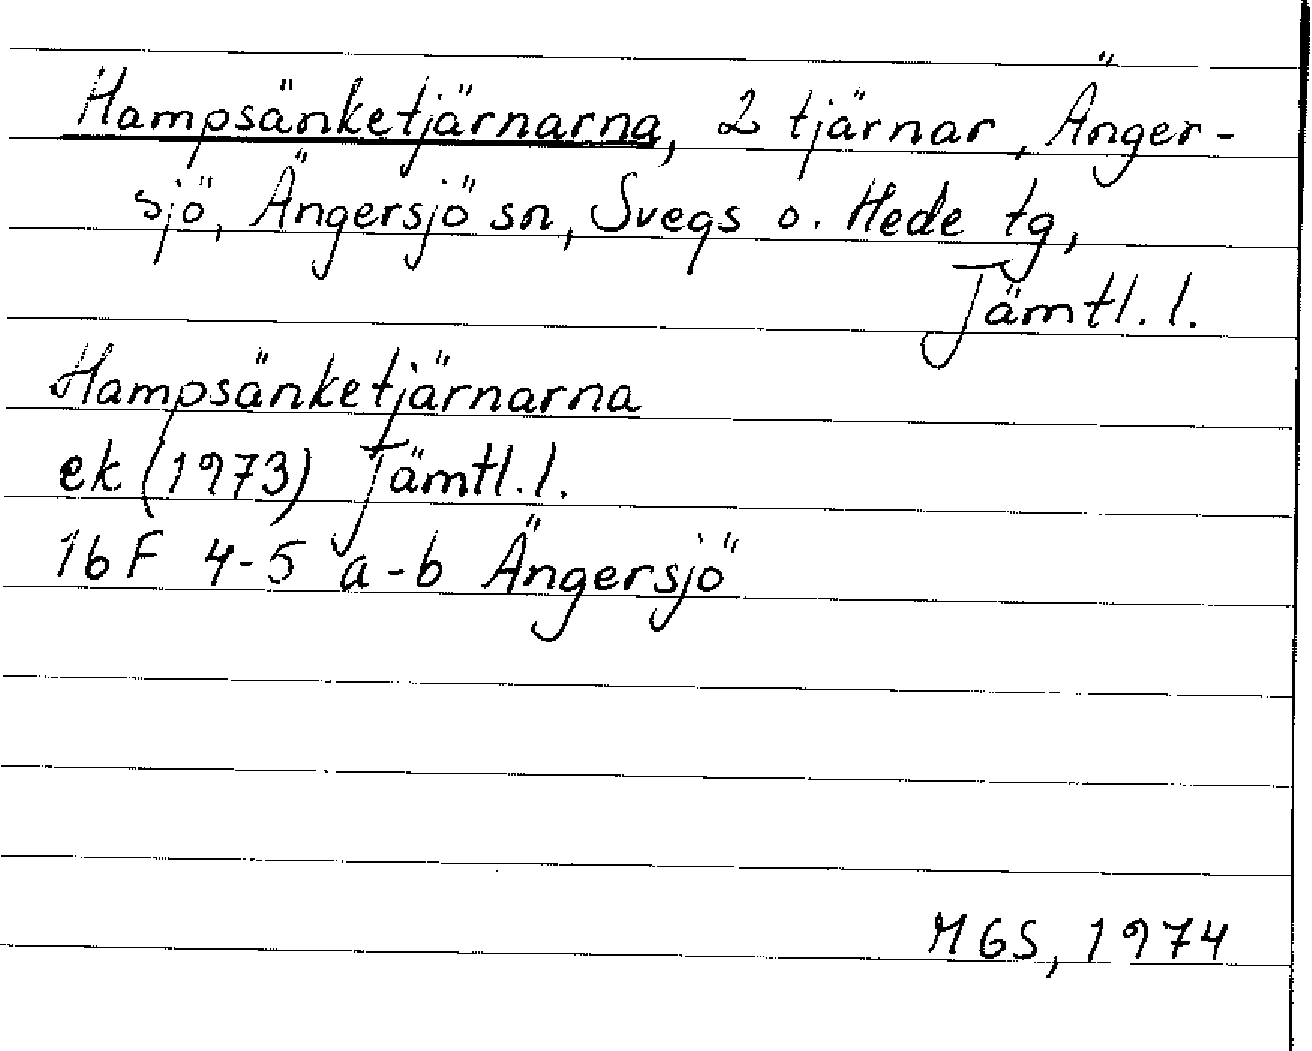 Hampsänketjärnarna, 2 tjärnar, Änger-
sjö, Ängersjö sn, Svegs o. Hede tg,
Jämtl. l.
Hampsänketjärnarna
ek (1973) Jämtl. l.
16 F 4-5 a-b Ängersjö
MGS, 1974